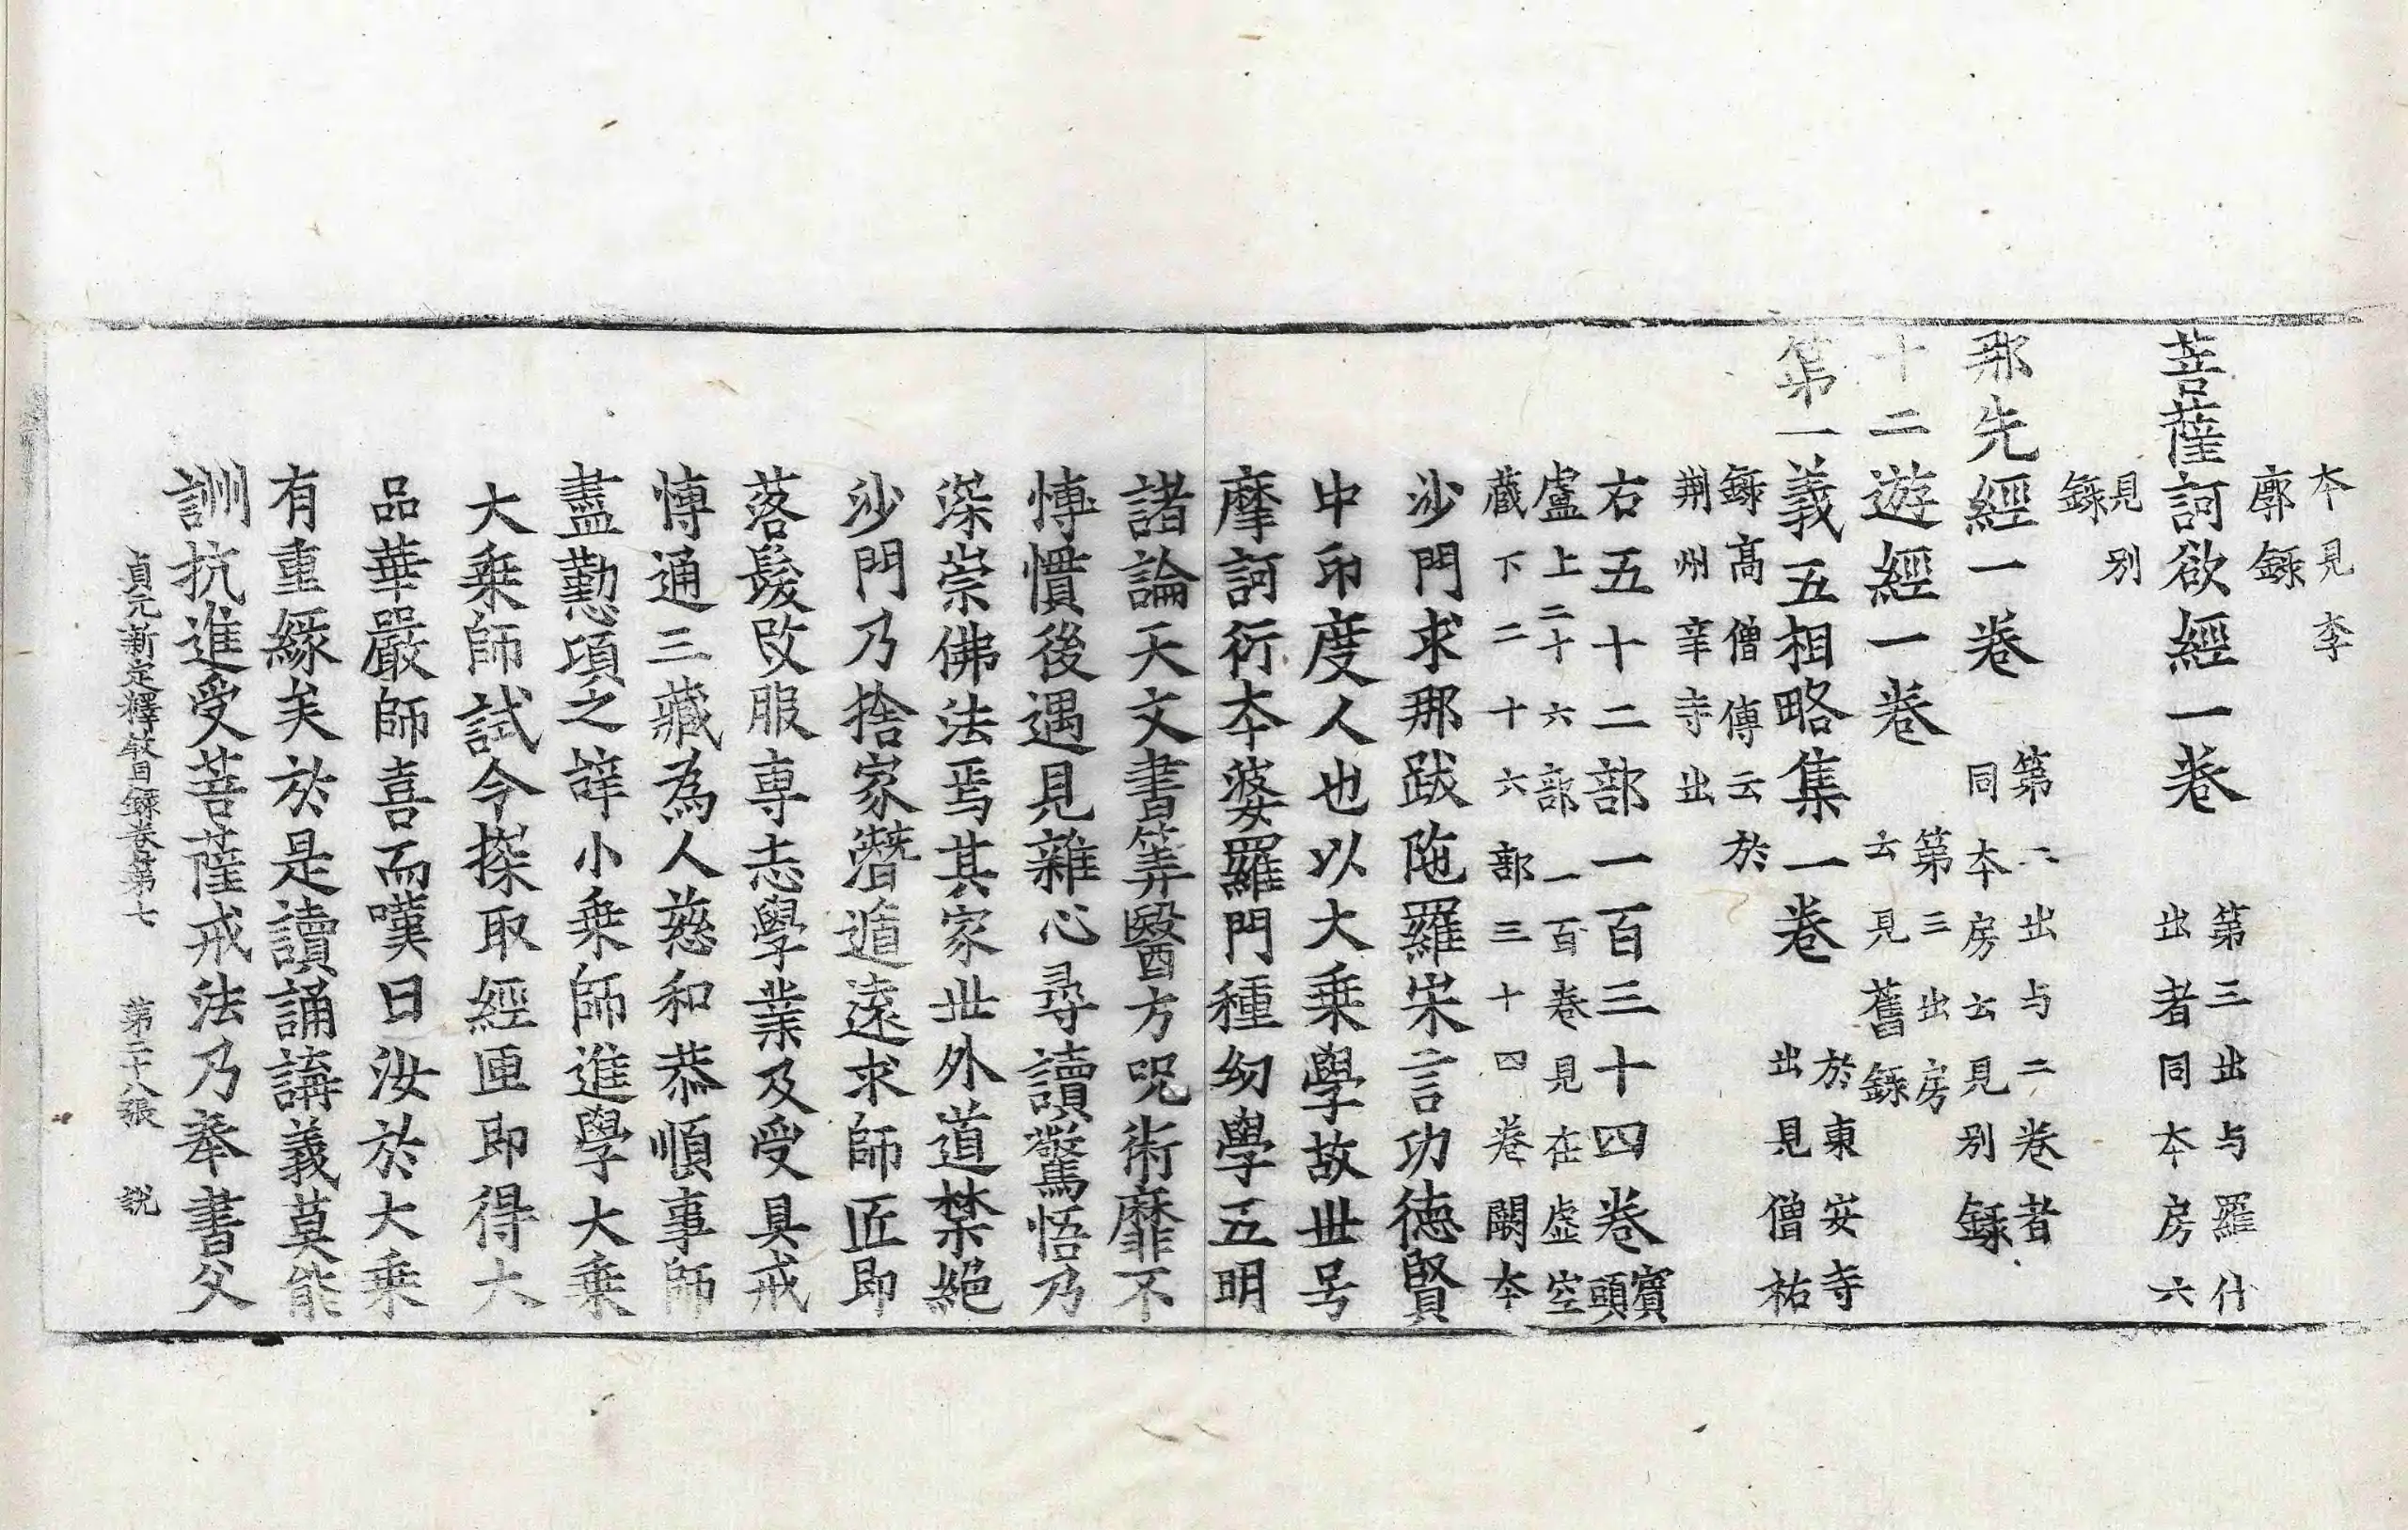 本見李
廓錄
菩薩訶欲經一卷 第三出与羅什
出者同本房六
見別
錄
那先經一卷 第二出与二卷者
同本房云見別錄
十二遊經一卷 第三出房
云見舊錄
第一義五相略集一卷 於東安寺
出見僧祐
錄高僧傳云於
荆州辛寺出
右五十二部一百三十四卷 賓
頭
盧上二十六部一百卷見在虛空
藏下二十六部三十四卷闕本
沙門求那跋陁羅宋言功德賢
中印度人也以大乘學故世号
摩訶衍本婆羅門種幼學五明
諸論天文書筭醫方呪術靡不
愽慣後遇見雜心尋讀驚悟乃
深崇佛法焉其家世外道禁絕
沙門乃捨家潛遁遠求師匠即
落髮改服專志學業及受具戒
愽通三藏為人慈和恭順事師
盡勤項之辞小乘師進學大乘
大乘師試令探取經匣即得大
品華嚴師喜而嘆曰汝於大乘
有重緣矣於是讀誦講義莫能
訓抗進受菩薩戒法乃奉書父
貞元新定釋教目錄卷第七 第二十八張 說